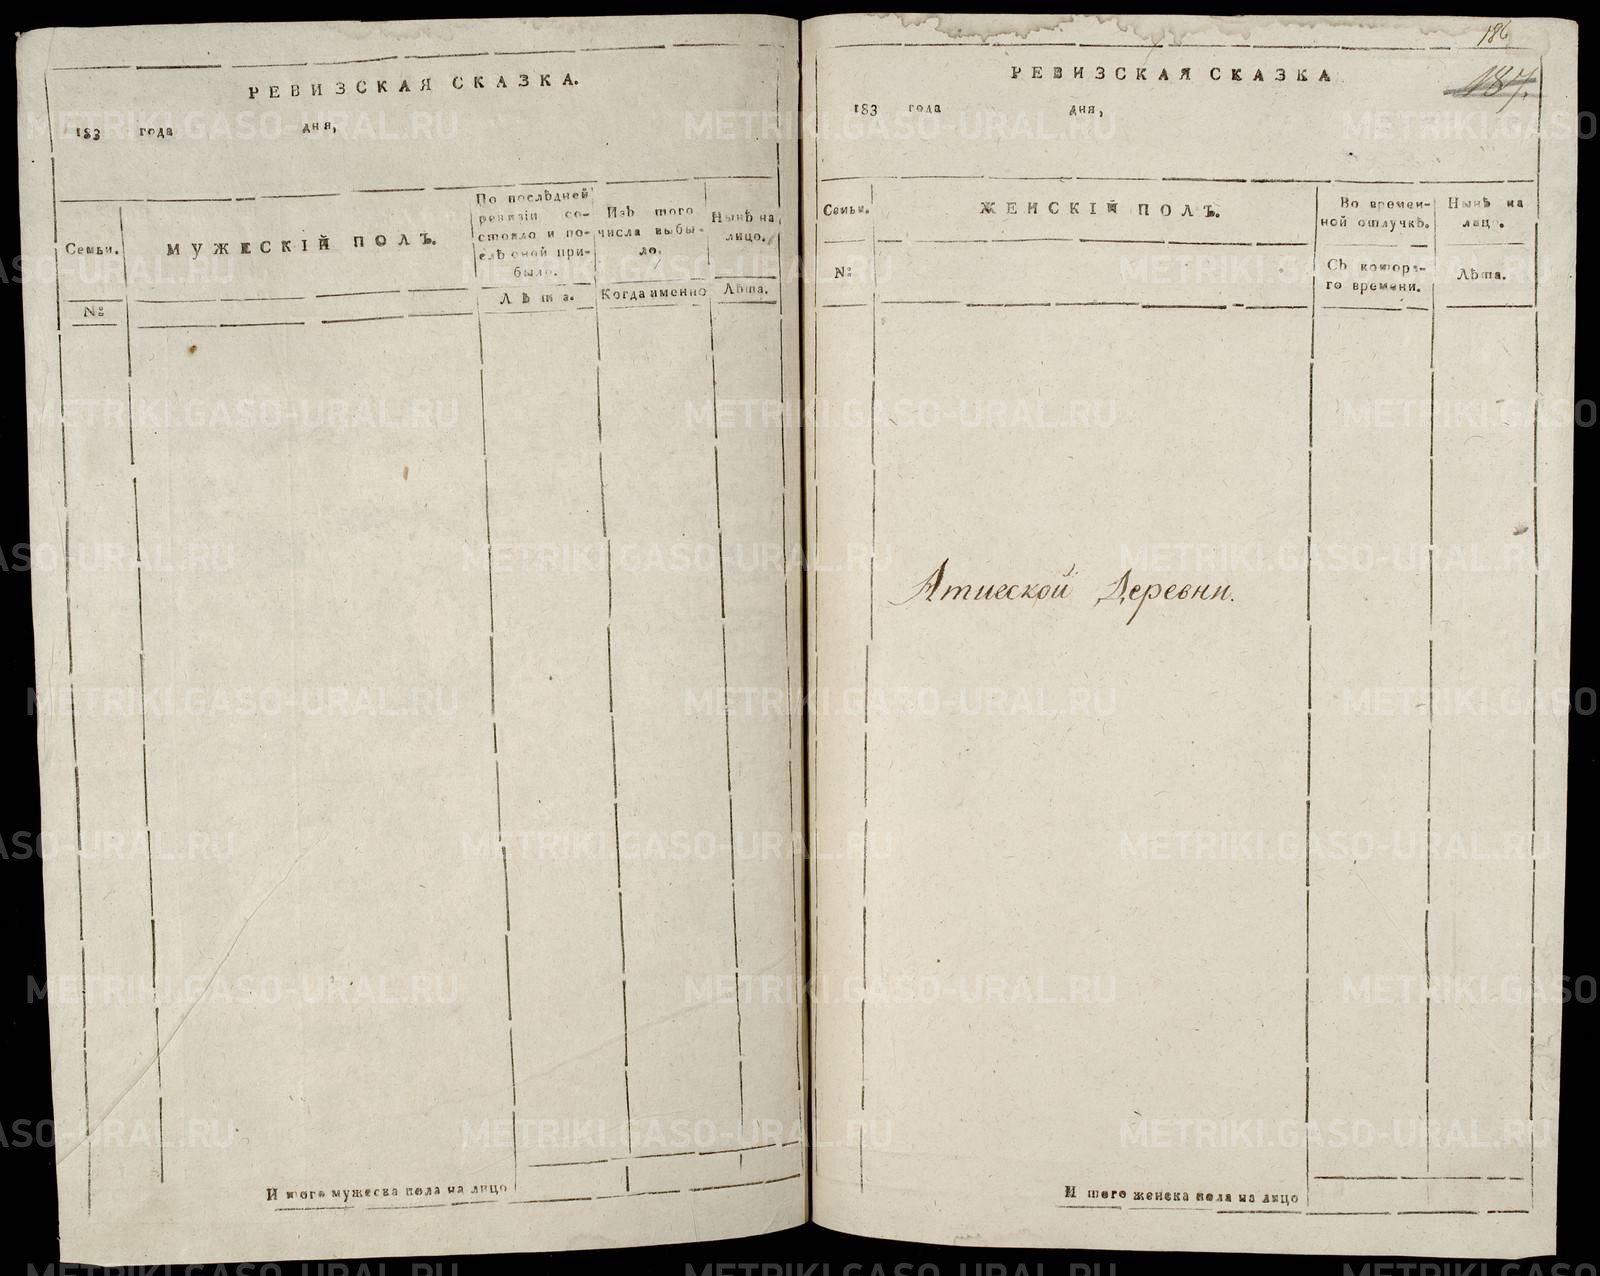 РЕВИЗСКАЯ СКАЗКА.
183 года дня,
Семьи.
№
МУЖЕСКІЙ ПОЛЪ.
По послѣдней
ревизіи со-
стояло и по-
слѣ оной при-
было.
Лѣта.
Изъ того
числа выбы-
ло.
Когда именно
Нынѣ на
лицо.
Лѣта.
И того мужеска пола на лицо
186
187.
РЕВИЗСКАЯ СКАЗКА
183 года дня,
Семьи.
№
ЖЕНСКІЙ ПОЛЪ.
Во времен-
ной отлучкѣ.
Съ котора-
го времени.
Нынѣ на
лицо.
Лѣта.
Атигской Деревни.
И того женска пола на лицо
METRIKI.GASO-URAL.RU